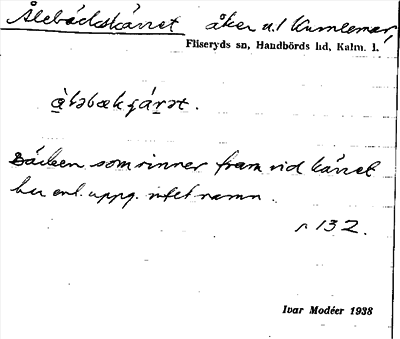 Ålebäckskärret åker u.l Kumlemar,
Fliseryds sn, Handbörds hd, Kalm. l.
Bäcken som rinner fram vid kärret
har enl. uppg. intet namn.
r 132.
Ivar Modéer 1938